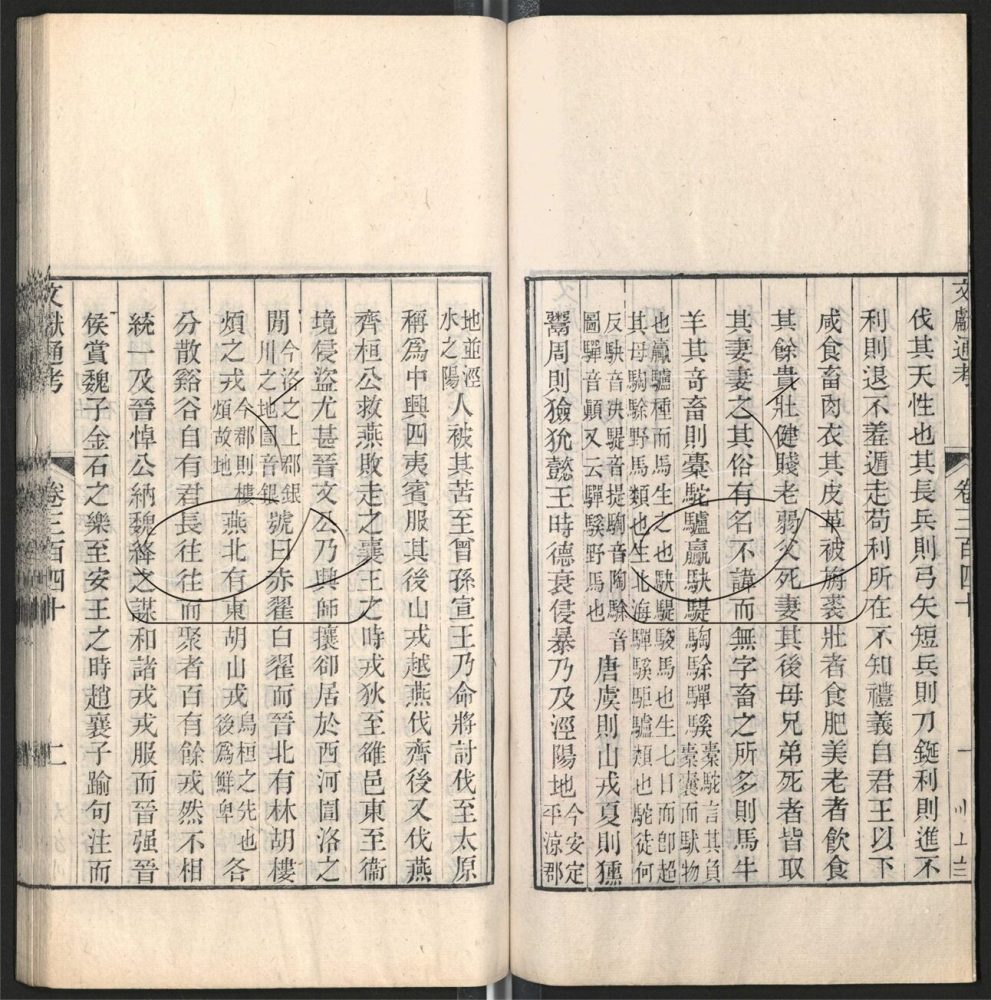 文獻通考 卷三百四十 一
伐其天性也其長兵則弓矢短兵則刀鋋利則進不
利則退不羞遁走苟利所在不知禮義自君王以下
咸食畜肉衣其皮革被旃裘壯者食肥美老者飲食
其餘貴壯健賤老弱父死妻其後母兄弟死者皆取
其妻妻之其俗有名不諱而無字畜之所多則馬牛
羊其奇畜則橐駝驢驘駃騠騊駼驒騱橐駝言其負橐囊而馱物
也驘驢種而馬生之也駃騠駿馬也生七日而卽超
其母騊駼野馬類也生北海驒騱駏驢類也駝徒何
反駃音決騠音提騊音陶駼音圖驒音顛又云驒騱野馬也唐虞則山戎夏則獯
鬻周則獫狁懿王時德衰侵暴乃及涇陽地今安定平涼郡
地並涇水之陽人被其苦至曾孫宣王乃命將討伐至太原
稱爲中興四夷賓服其後山戎越燕伐齊後又伐燕
齊桓公救燕敗走之襄王之時戎狄至雒邑東至衞
境侵盜尤甚晉文公乃興師攘卻居於西河圁洛之
閒今洛之上郡銀川之地圁音銀號曰赤翟白翟而晉北有林胡樓
煩之戎今郡則樓煩故地燕北有東胡山戎烏桓之先也後爲鮮卑各
分散谿谷自有君長往往而聚者百有餘戎然不相
統一及晉悼公納魏絳之謀和諸戎戎服而晉强晉
侯賞魏子金石之樂至安王之時趙襄子踰句注而
文獻通考 卷三百四十 二